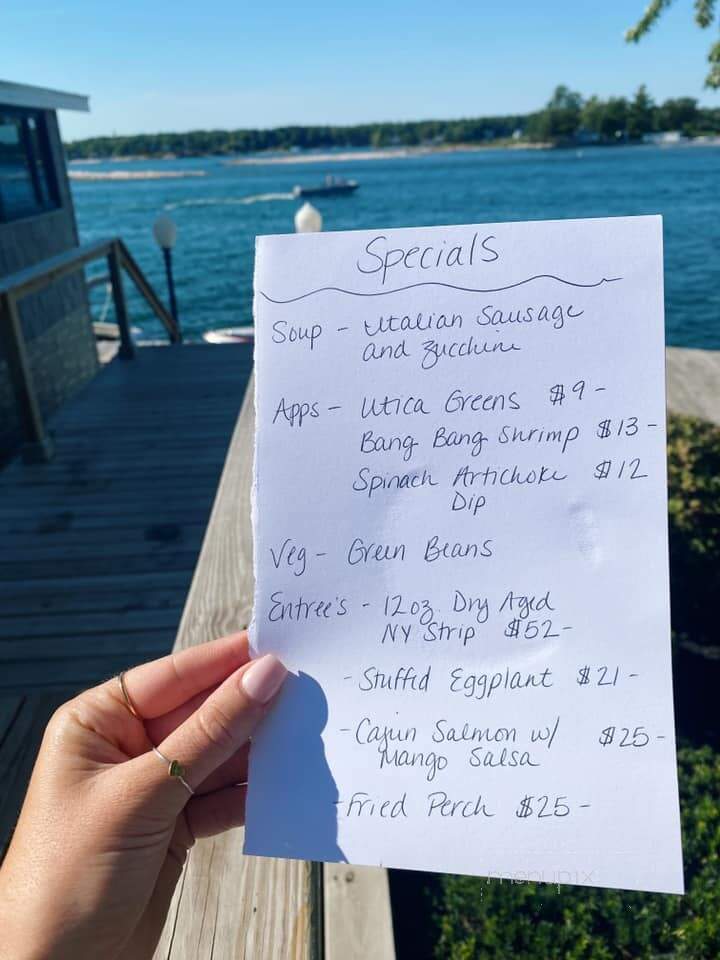 Specials
Soup - Italian Sausage
and Zucchini
Apps - Utica Greens $9 -
Bang Bang Shrimp $13 -
Spinach Artichoke $12
Dip
Veg - Green Beans
Entree's - 12oz. Dry Aged
NY Strip $52 -
- Stuffed Eggplant $21 -
- Cajun Salmon w/ $25 -
Mango Salsa
- Fried Perch $25 -
menupix